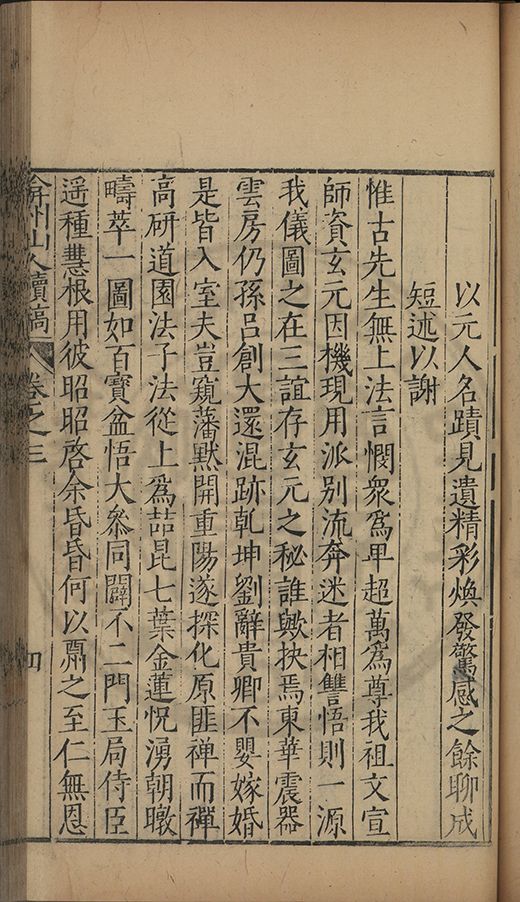 以元人名蹟見遺精彩煥發驚感之餘聊成
短述以謝
惟古先生無上法言憫衆爲卑超萬爲尊我祖文宣
師資玄元因機現用派别流奔迷者相讐悟則一源
我儀圖之在三誼存玄元之秘誰歟抉焉東華震器
雲房仍孫吕創大還混跡乹坤劉辭貴卿不嬰嫁婚
是皆入室夫豈窺藩默開重陽遂探化原匪禅而禪
高研道園法子法從上爲喆昆七葉金蓮怳湧朝暾
疇萃一圖如百寶盆悟大叅同闢不二門玉局侍臣
遥種慧根用彼昭昭啓余昏昏何以酬之至仁無恩
弇州山人續稿
卷之三
四